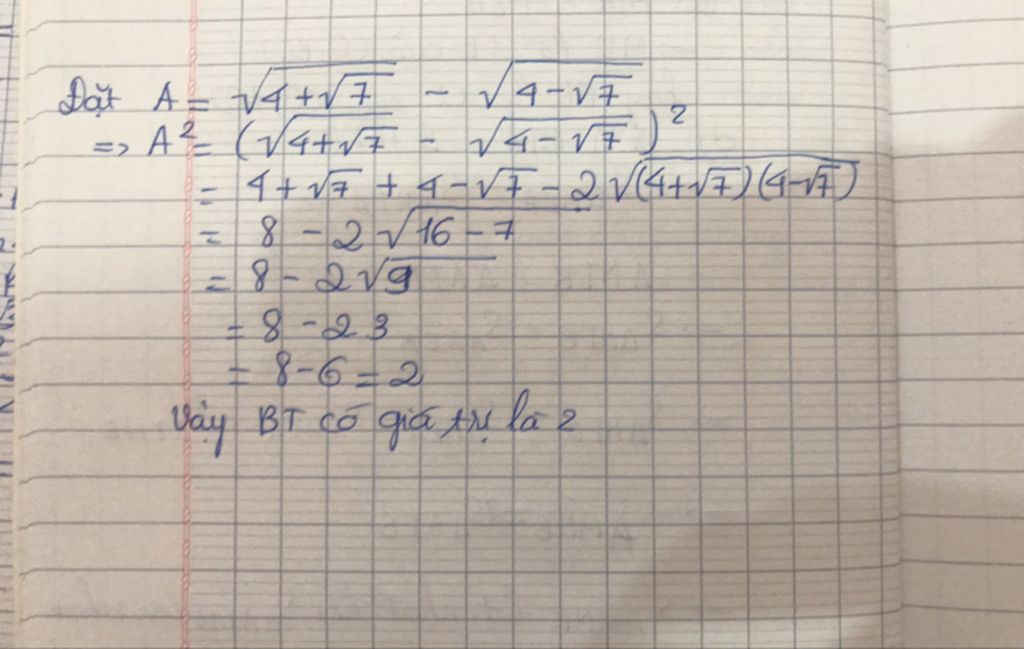 Đặt A = √(4+√7) - √(4-√7)
=> A² = (√(4+√7) - √(4-√7))²
= 4+√7 + 4-√7 - 2√((4+√7)(4-√7))
= 8 - 2√(16-7)
= 8 - 2√9
= 8 - 2 3
= 8-6 = 2
Vậy BT có giá trị là 2